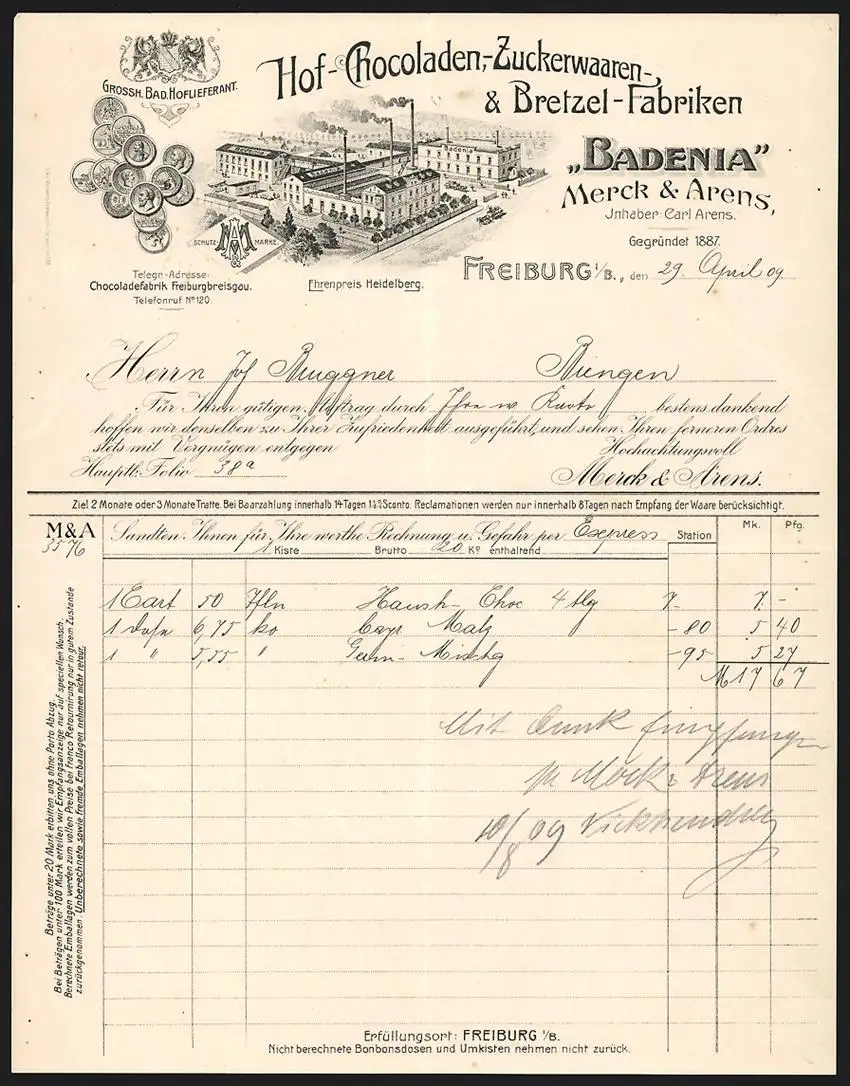 GROSSH. BAD. HOFLIEFERANT.
Hof-Chocoladen-, Zuckerwaaren-,
& Bretzel-Fabriken
„BADENIA”
Merck & Arens,
Jnhaber Carl Arens.
Gegründet 1887.
Badenia
Badenia
Badenia
SCHUTZ MARKE.
Telegr.-Adresse:
Chocoladefabrik Freiburgbreisgau.
Telefonruf Nº 120.
Ehrenpreis Heidelberg.
FREIBURG i/B., den 29. April 09
Herrn Jos Bruggner Biengen
Für Ihren gütigen Auftrag durch Ihre w. Karte bestens dankend
hoffen wir denselben zu Ihrer Zufriedenheit ausgeführt, und sehen Ihren ferneren Ordres
stets mit Vergnügen entgegen Hochachtungsvoll
Hauptb: Folio 38a Merck & Arens.
Ziel 2 Monate oder 3 Monate Tratte. Bei Baarzahlung innerhalb 14 Tagen 1½% Sconto. Reclamationen werden nur innerhalb 8 Tagen nach Empfang der Waare berücksichtigt.
M & A Sandten Ihnen für Ihre werthe Rechnung u. Gefahr per Express Station Mk. Pfg.
3576 1 Kiste Brutto 20 Kº enthaltend
1 Cart 50 Tfln Haush- Choc 4 tlg 7.- 7. -
1 Dose 6,75 ko Bayr Malz -80 5 40
1 " 5,55 " Gem- Mischg -95 5 27
M 17 67
Mit Dank empfangen
pr Merck & Arens
10/8 09
Beträge unter 20 Mark erbitten uns ohne Porto Abzug.
Bei Beträgen unter 100 Mark erteilen wir Empfangsanzeige nur auf speciellen Wunsch.
Berechnete Emballagen werden zum vollen Preise bei franco Retournirung nur in gutem Zustande
zurückgenommen. Unberechnete sowie fremde Emballagen nehmen nicht retour.
Erfüllungsort: FREIBURG i/B.
Nicht berechnete Bonbonsdosen und Umkisten nehmen nicht zurück.